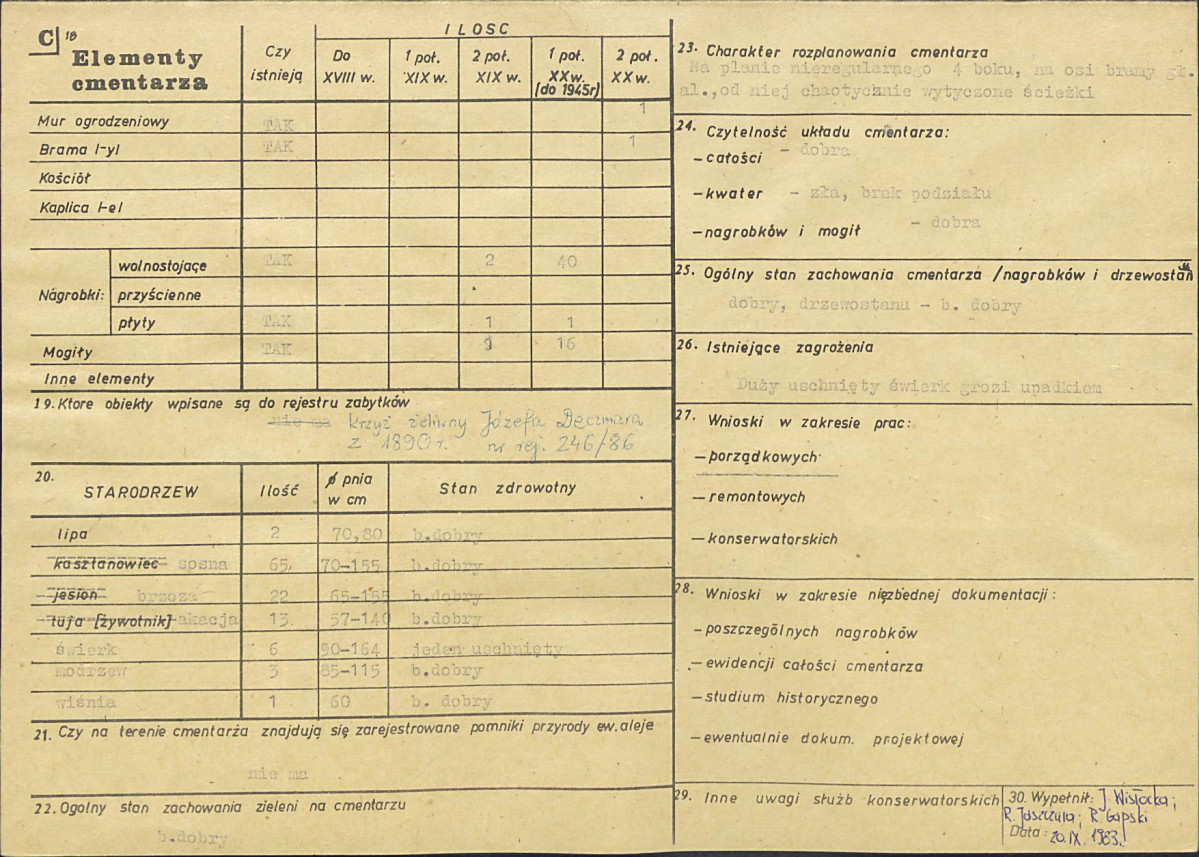 C 18
Elementy cmentarza
Czy istnieją
ILOSC
Do XVIII w.
1 poł. XIX w.
2 poł. XIX w.
1 poł. XX w. (do 1945r)
2 poł. XX w.
Mur ogrodzeniowy TAK 1
Brama l-yl TAK 1
Kościół
Kaplica l-el
Nagrobki:
wolnostojące TAK 2 40
przyścienne
płyty TAK 1 1
Mogiły TAK 16
Inne elementy
19. Ktore obiekty wpisane są do rejestru zabytków
nie ma krzyż żeliwny Józefa Deczmara
z 1890 r. nr rej. 246/86
20. STARODRZEW Ilość ϕ pnia w cm Stan zdrowotny
lipa 2 70,80 b.dobry
kasztanowiec sosna 65 70-155 b.dobry
jesion brzoza 22 65-155 b.dobry
tuja [żywotnik] akacja 13 57-140 b.dobry
świerk 6 90-164 jeden uschnięty
modrzew 3 85-115 b.dobry
wiśnia 1 60 b. dobry
21. Czy na terenie cmentarza znajdują się zarejestrowane pomniki przyrody ew. aleje
nie ma
22. Ogolny stan zachowania zieleni na cmentarzu
b.dobry
23. Charakter rozplanowania cmentarza
Na planie nieregularnego 4 boku, na osi bramy gł.
al., od niej chaotycznie wytyczone ścieżki
24. Czytelność układu cmentarza:
- całości - dobra
- kwater - zła, brak podziału
- nagrobków i mogił - dobra
25. Ogólny stan zachowania cmentarza /nagrobków i drzewostan
dobry, drzewostanu - b. dobry
26. Istniejące zagrożenia
Duży uschnięty świerk grozi upadkiem
27. Wnioski w zakresie prac:
- porządkowych
- remontowych
- konserwatorskich
28. Wnioski w zakresie niezbędnej dokumentacji:
- poszczególnych nagrobków
- ewidencji całości cmentarza
- studium historycznego
- ewentualnie dokum. projektowej
29. Inne uwagi służb konserwatorskich
30. Wypełnił: J. Wisłocka;
R. Jaszczuła; R. Gapski
Data: 20.IX.1983.